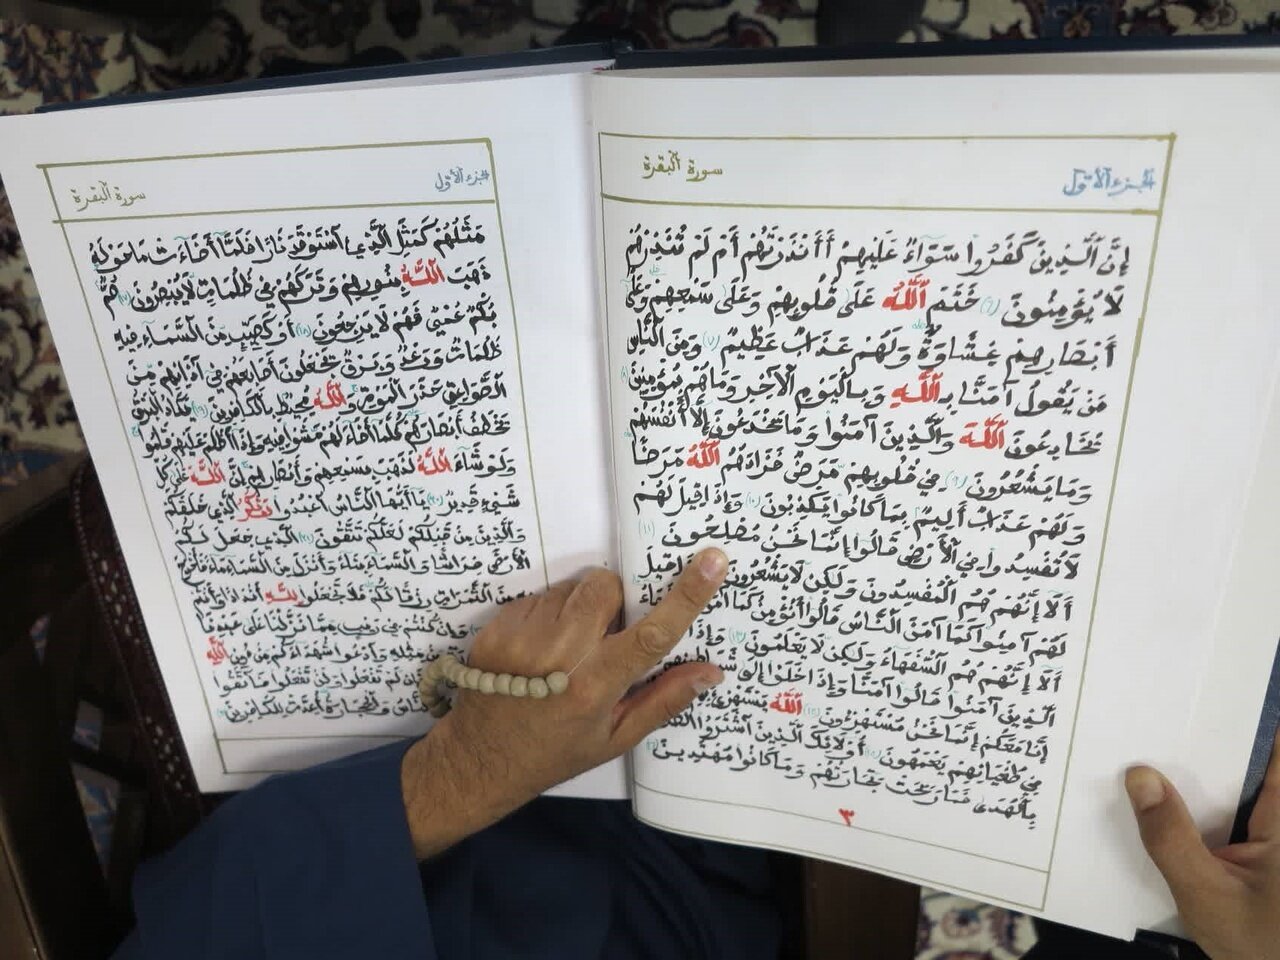 الجزء الأول
سورة البقرة
إِنَّ ٱلَّذِينَ كَفَرُوا سَوَاءٌ عَلَيْهِمْ أَأَنْذَرْتَهُمْ أَمْ لَمْ تُنْذِرْهُمْ
لَا يُؤْمِنُونَ (٦) خَتَمَ ٱللَّهُ عَلَى قُلُوبِهِمْ وَعَلَى سَمْعِهِمْ وَعَلَى
أَبْصَارِهِمْ غِشَاوَةٌ وَلَهُمْ عَذَابٌ عَظِيمٌ (٧) وَمِنَ النَّاسِ
مَنْ يَقُولُ آمَنَّا بِٱللَّهِ وَبِالْيَوْمِ الْآخِرِ وَمَا هُمْ بِمُؤْمِنِينَ (٨)
يُخَادِعُونَ ٱللَّهَ وَالَّذِينَ آمَنُوا وَمَا يَخْدَعُونَ إِلَّا أَنْفُسَهُمْ
وَمَا يَشْعُرُونَ (٩) فِي قُلُوبِهِمْ مَرَضٌ فَزَادَهُمُ ٱللَّهُ مَرَضًا
وَلَهُمْ عَذَابٌ أَلِيمٌ بِمَا كَانُوا يَكْذِبُونَ (١٠) وَإِذَا قِيلَ لَهُمْ
لَا تُفْسِدُوا فِي الْأَرْضِ قَالُوا إِنَّمَا نَحْنُ مُصْلِحُونَ (١١)
أَلَا إِنَّهُمْ هُمُ الْمُفْسِدُونَ وَلَكِنْ لَا يَشْعُرُونَ قِيلَ
لَهُمْ آمِنُوا كَمَا آمَنَ النَّاسُ قَالُوا أَنُؤْمِنُ كَمَا
أَلَا إِنَّهُمْ هُمُ السُّفَهَاءُ وَلَكِنْ لَا يَعْلَمُونَ (١٣) وَإِذَا
الَّذِينَ آمَنُوا قَالُوا آمَنَّا وَإِذَا خَلَوْا إِلَى
إِنَّا مَعَكُمْ إِنَّمَا نَحْنُ مُسْتَهْزِئُونَ (١٤) ٱللَّهُ يَسْتَهْزِئُ
فِي طُغْيَانِهِمْ يَعْمَهُونَ (١٥) أُولَئِكَ الَّذِينَ ٱشْتَرَوُا
بِالْهُدَى فَمَا رَبِحَتْ تِجَارَتُهُمْ وَمَا كَانُوا مُهْتَدِينَ
٣
الجزء الأول
سورة البقرة
مَثَلُهُمْ كَمَثَلِ الَّذِي ٱسْتَوْقَدَ نَارًا فَلَمَّا أَضَاءَتْ مَا حَوْلَهُ
ذَهَبَ ٱللَّهُ بِنُورِهِمْ وَتَرَكَهُمْ فِي ظُلُمَاتٍ لَا يُبْصِرُونَ (١٧) صُمٌّ
بُكْمٌ عُمْيٌ فَهُمْ لَا يَرْجِعُونَ (١٨) أَوْ كَصَيِّبٍ مِنَ السَّمَاءِ فِيهِ
ظُلُمَاتٌ وَرَعْدٌ وَبَرْقٌ يَجْعَلُونَ أَصَابِعَهُمْ فِي آذَانِهِمْ مِنَ
الصَّوَاعِقِ حَذَرَ الْمَوْتِ وَٱللَّهُ مُحِيطٌ بِالْكَافِرِينَ (١٩) يَكَادُ الْبَرْقُ
يَخْطَفُ أَبْصَارَهُمْ كُلَّمَا أَضَاءَ لَهُمْ مَشَوْا فِيهِ وَإِذَا أَظْلَمَ عَلَيْهِمْ قَامُوا
وَلَوْ شَاءَ ٱللَّهُ لَذَهَبَ بِسَمْعِهِمْ وَأَبْصَارِهِمْ إِنَّ ٱللَّهَ عَلَى كُلِّ
شَيْءٍ قَدِيرٌ (٢٠) يَا أَيُّهَا النَّاسُ ٱعْبُدُوا رَبَّكُمُ الَّذِي خَلَقَكُمْ
وَالَّذِينَ مِنْ قَبْلِكُمْ لَعَلَّكُمْ تَتَّقُونَ (٢١) الَّذِي جَعَلَ لَكُمُ
الْأَرْضَ فِرَاشًا وَالسَّمَاءَ بِنَاءً وَأَنْزَلَ مِنَ السَّمَاءِ مَاءً فَأَخْرَجَ
مِنَ الثَّمَرَاتِ رِزْقًا لَكُمْ فَلَا تَجْعَلُوا لِلَّهِ أَنْدَادًا وَأَنْتُمْ
وَإِنْ كُنْتُمْ فِي رَيْبٍ مِمَّا نَزَّلْنَا عَلَى عَبْدِنَا
مِنْ مِثْلِهِ وَٱدْعُوا شُهَدَاءَكُمْ مِنْ دُونِ ٱللَّهِ
لَمْ تَفْعَلُوا وَلَنْ تَفْعَلُوا فَاتَّقُوا
النَّاسُ وَالْحِجَارَةُ أُعِدَّتْ لِلْكَافِرِينَ